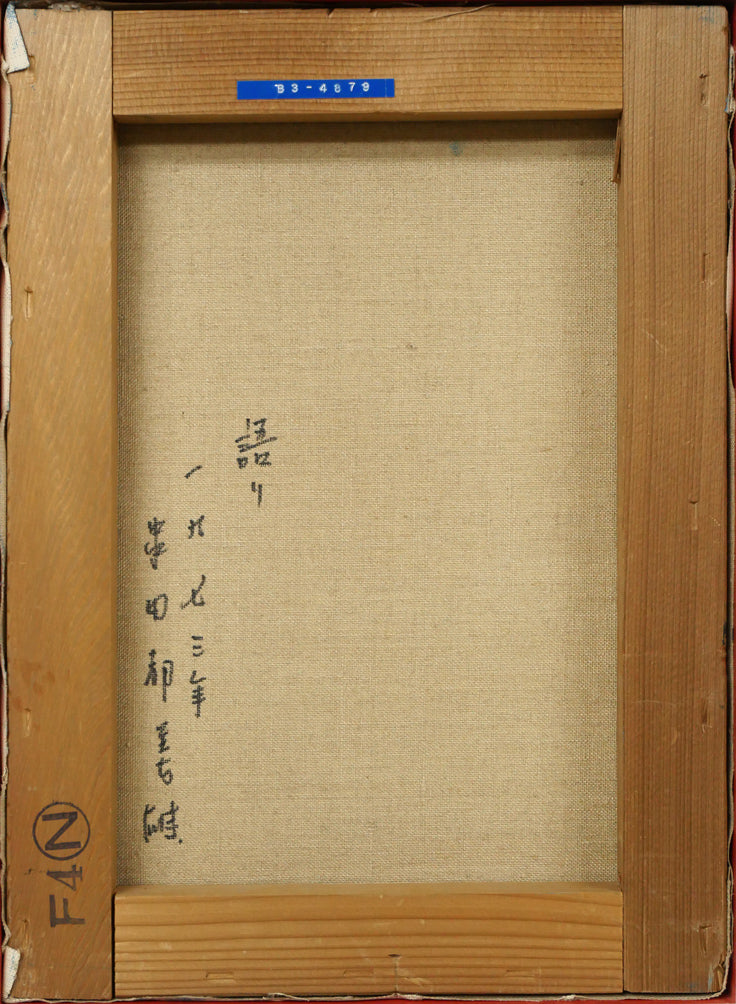 B3-4879
語り
一九七三年
田都
F4 Ⓝ